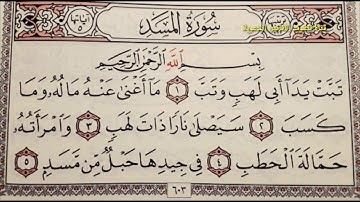 سُورَةُ المَسَدِ
آيَاتُهَا ٥
بِسْمِ اللَّهِ الرَّحْمَٰنِ الرَّحِيمِ
تَبَّتْ يَدَا أَبِي لَهَبٍ وَتَبَّ ١ مَا أَغْنَىٰ عَنْهُ مَالُهُ وَمَا
كَسَبَ ٢ سَيَصْلَىٰ نَارًا ذَاتَ لَهَبٍ ٣ وَامْرَأَتُهُ
حَمَّالَةَ الْحَطَبِ ٤ فِي جِيدِهَا حَبْلٌ مِّن مَّسَدٍ ٥
٦٠٣